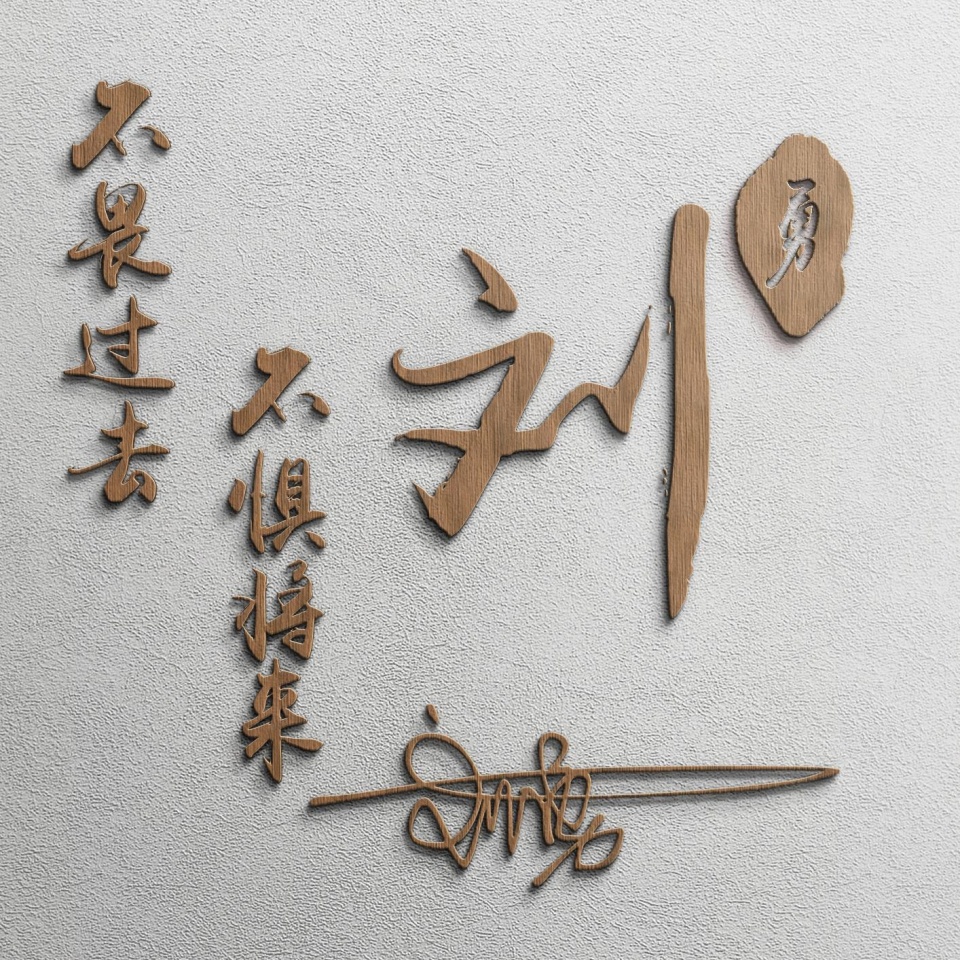 不畏过去
不惧将来
刘
勇
刘勇